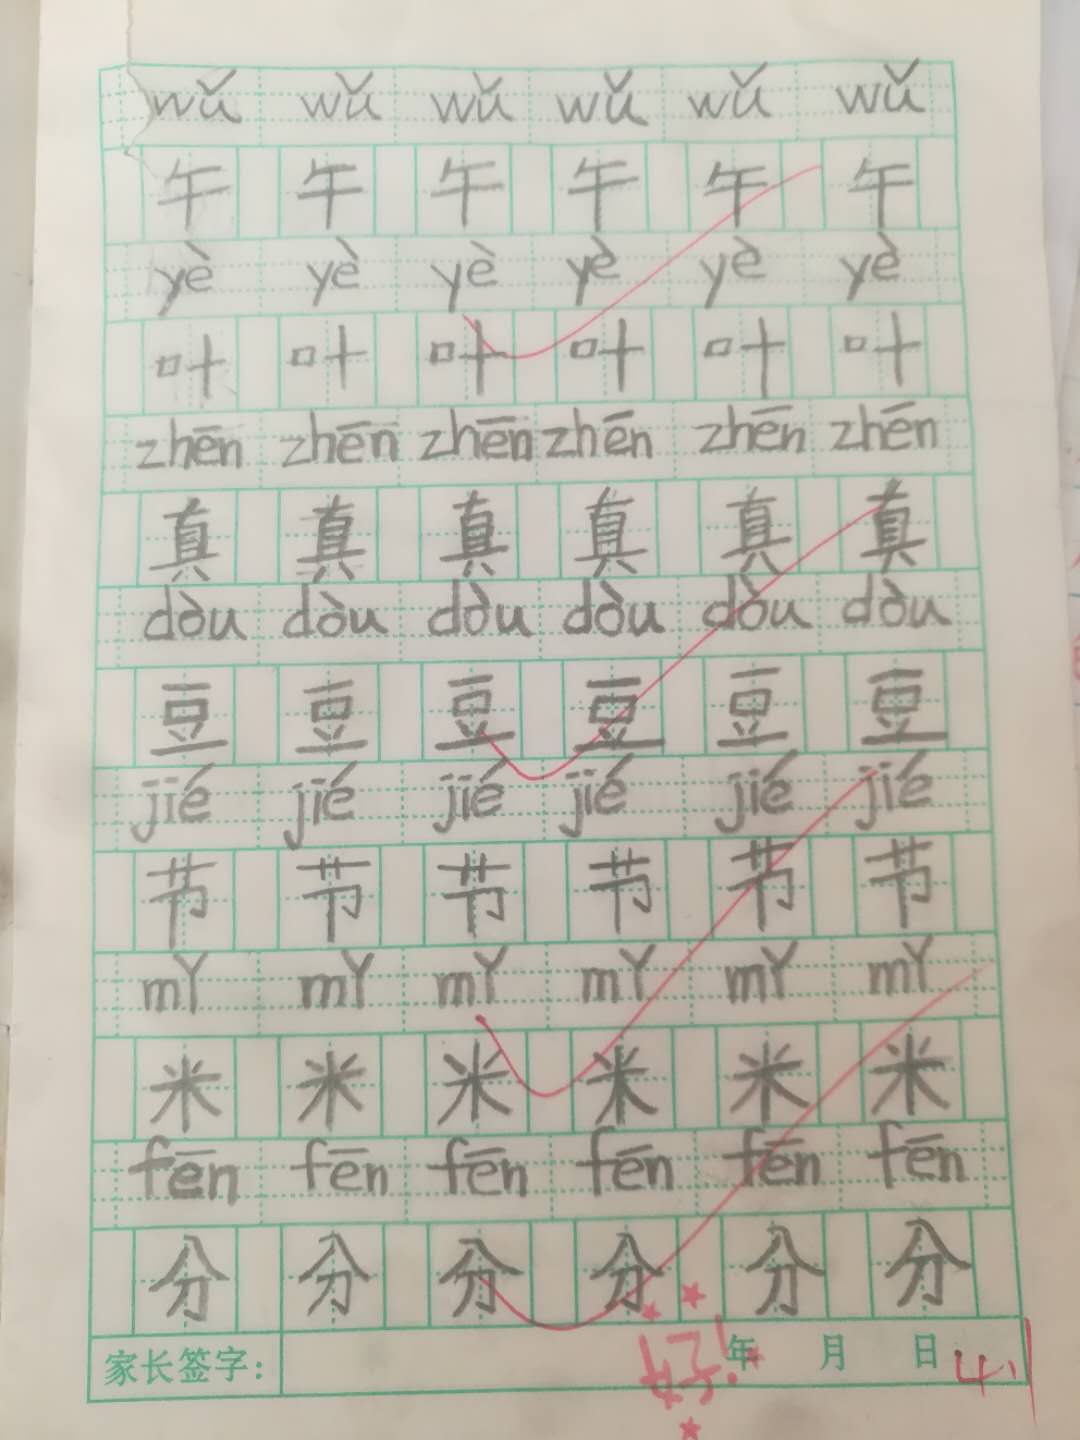 wǔ wǔ wǔ wǔ wǔ wǔ
午 午 午 午 午 午
yè yè yè yè yè yè
叶 叶 叶 叶 叶 叶
zhēn zhēn zhēn zhēn zhēn zhēn
真 真 真 真 真 真
dòu dòu dòu dòu dòu dòu
豆 豆 豆 豆 豆 豆
jié jié jié jié jié jié
节 节 节 节 节 节
mǐ mǐ mǐ mǐ mǐ mǐ
米 米 米 米 米 米
fēn fēn fēn fēn fēn fēn
分 分 分 分 分 分
家长签字: 好! 年 月 日 4.1